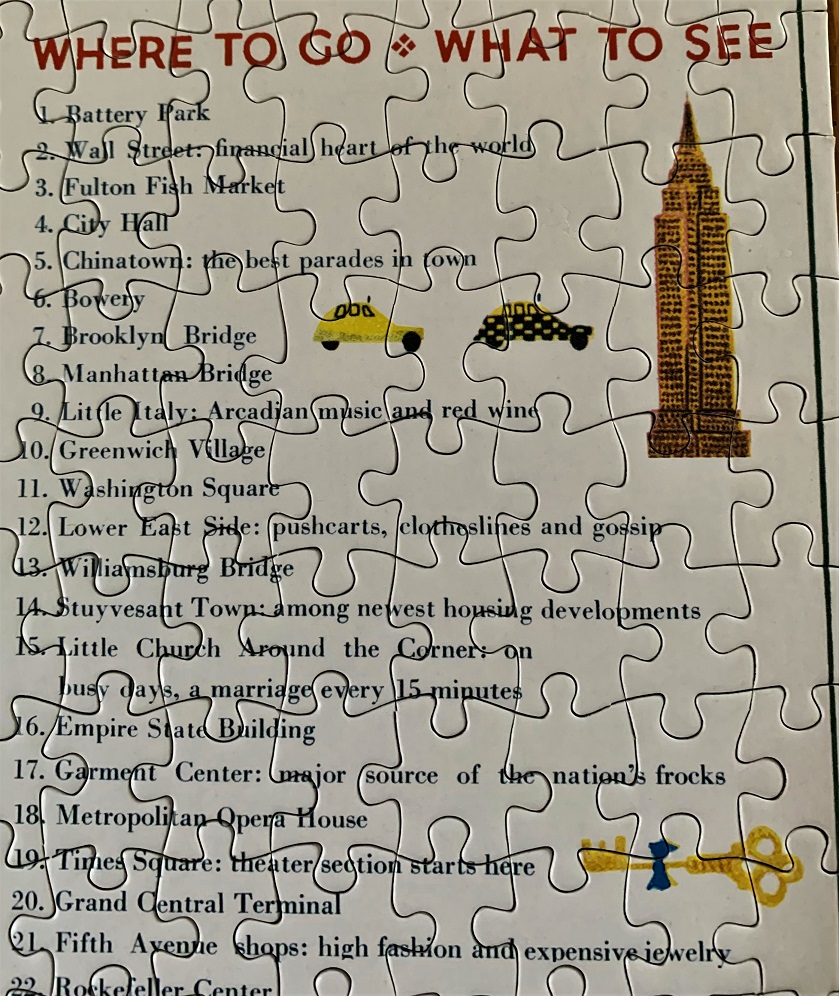 WHERE TO GO ❖ WHAT TO SEE
1. Battery Park
2. Wall Street: financial heart of the world
3. Fulton Fish Market
4. City Hall
5. Chinatown: the best parades in town
6. Bowery
7. Brooklyn Bridge
8. Manhattan Bridge
9. Little Italy: Arcadian music and red wine
10. Greenwich Village
11. Washington Square
12. Lower East Side: pushcarts, clotheslines and gossip
13. Williamsburg Bridge
14. Stuyvesant Town: among newest housing developments
15. Little Church Around the Corner: on
busy days, a marriage every 15 minutes
16. Empire State Building
17. Garment Center: major source of the nation's frocks
18. Metropolitan Opera House
19. Times Square: theater section starts here
20. Grand Central Terminal
21. Fifth Avenue shops: high fashion and expensive jewelry
22. Rockefeller Center